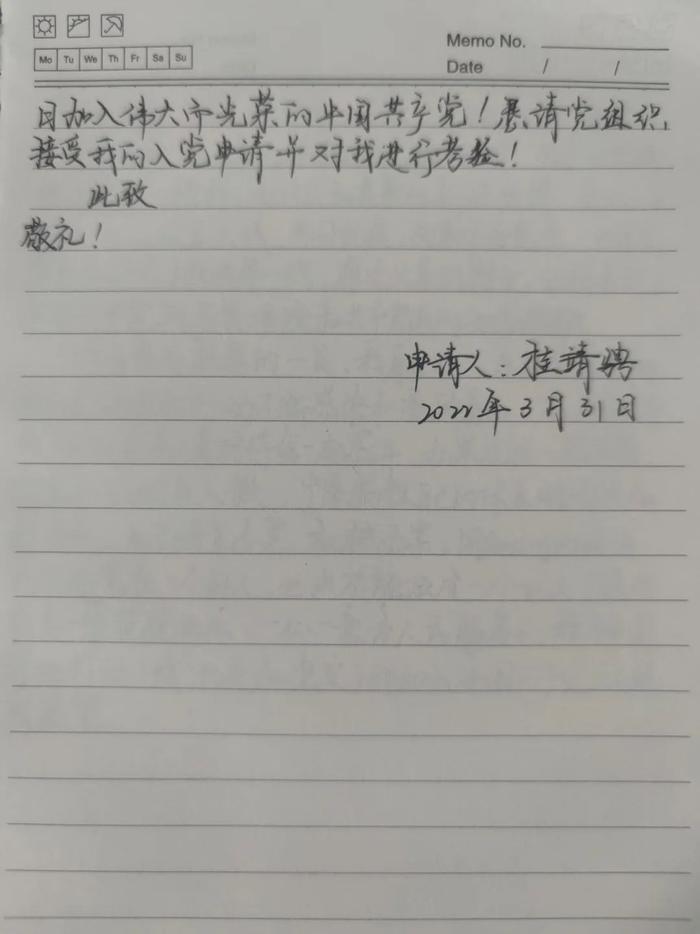 Memo No.
Mo Tu We Th Fr Sa Su
Date / /
日加入伟大而光荣的中国共产党！恳请党组织
接受我的入党申请并对我进行考验！
此致
敬礼！
申请人：桂靖骋
2022年3月31日